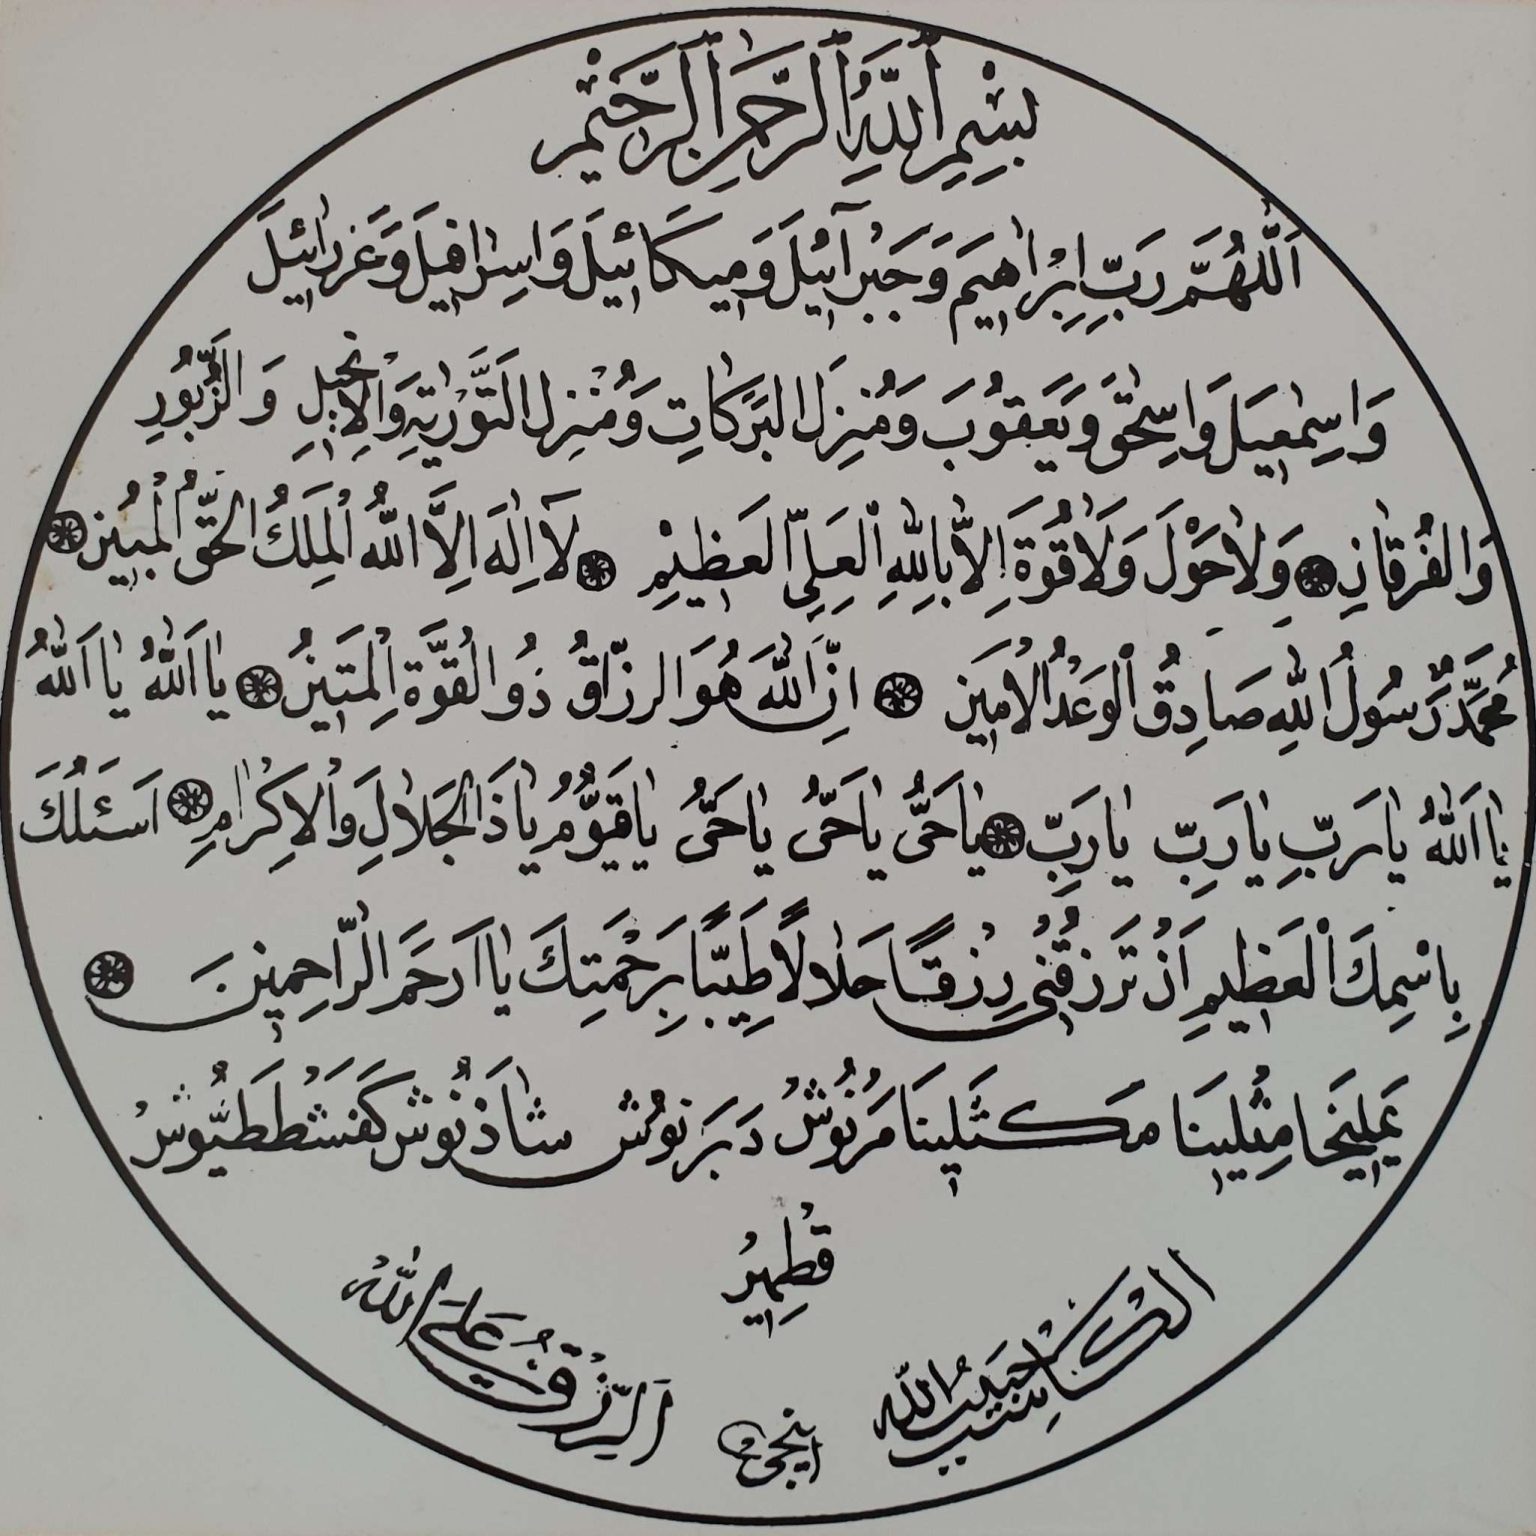 بِسْمِ ٱللَّهِ ٱلرَّحْمٰنِ ٱلرَّحِيْمِ
اَللّٰهُمَّ رَبِّ اِبْرٰاهِيمَ وَجَبْرَآئِيْلَ وَمِيكَائِيلَ وَاِسِرٰافِيلَ وَعَزرٰائِيلَ
وَاِسِمٰعِيَلَ وَاِسِحٰقَ وَيَعَقوُبَ وَمُنِزِلَ البَرَكَاتِ وَمُنْزِلَ التَّوْرٰيةِ وَاْلاِنْجِيلِ وَالزَّبُورِ
وَالفُرقٰانِ وَلٰاحَوْلَ وَلَاقُوَةَ اِلاّٰ بِاللّٰهِ ٱلعَلِىِّ العَظيْمِ لآاِلٰهَ اِلاَّ اللّٰهُ اْلمَلِكُ الحَقُّ اْلمُبيُن
مُحمَّدٌ رَّسُولُ اللّٰهِ صَادِقُ ٱلوَعْدُ اْلاَمَين اِنَّ اللّٰهَ هُوَ الرزَّاقُ ذُو القُوَّةِ اْلمَتيَنُ يٰا اَللّٰهُ يٰا اَللّٰهُ
يٰا اَللّٰهُ يٰارَبِّ يٰارَبِّ يٰارَبِّ يٰاحَىُّ يٰاحَىُّ يٰاحَىُّ يٰاقَيوُّمُ يٰاذَا الجَلٰالِ وَاْلاِكرْٰامِ اَسَئَلُكَ
بِاسْمِكَ اْلعَظيمِ اَنْ تَرَزقُنْى رِزْقًا حَلٰالًا طَيِبًّا بِرَحْمَتِكَ يٰا اَرحَمَ الرّٰاحِمينَ
يَمليَخا مِثْلينَا مَكثَلينَا مَرْنُوشُ دَبَرَنوُش شٰاذَنُوش كَفَشْطَطَيُّوشْ
قْطمِيرُ
الكاتب حبيب الله
اينجى
اَلرِّزْقُ عَلَى اللّٰهُ